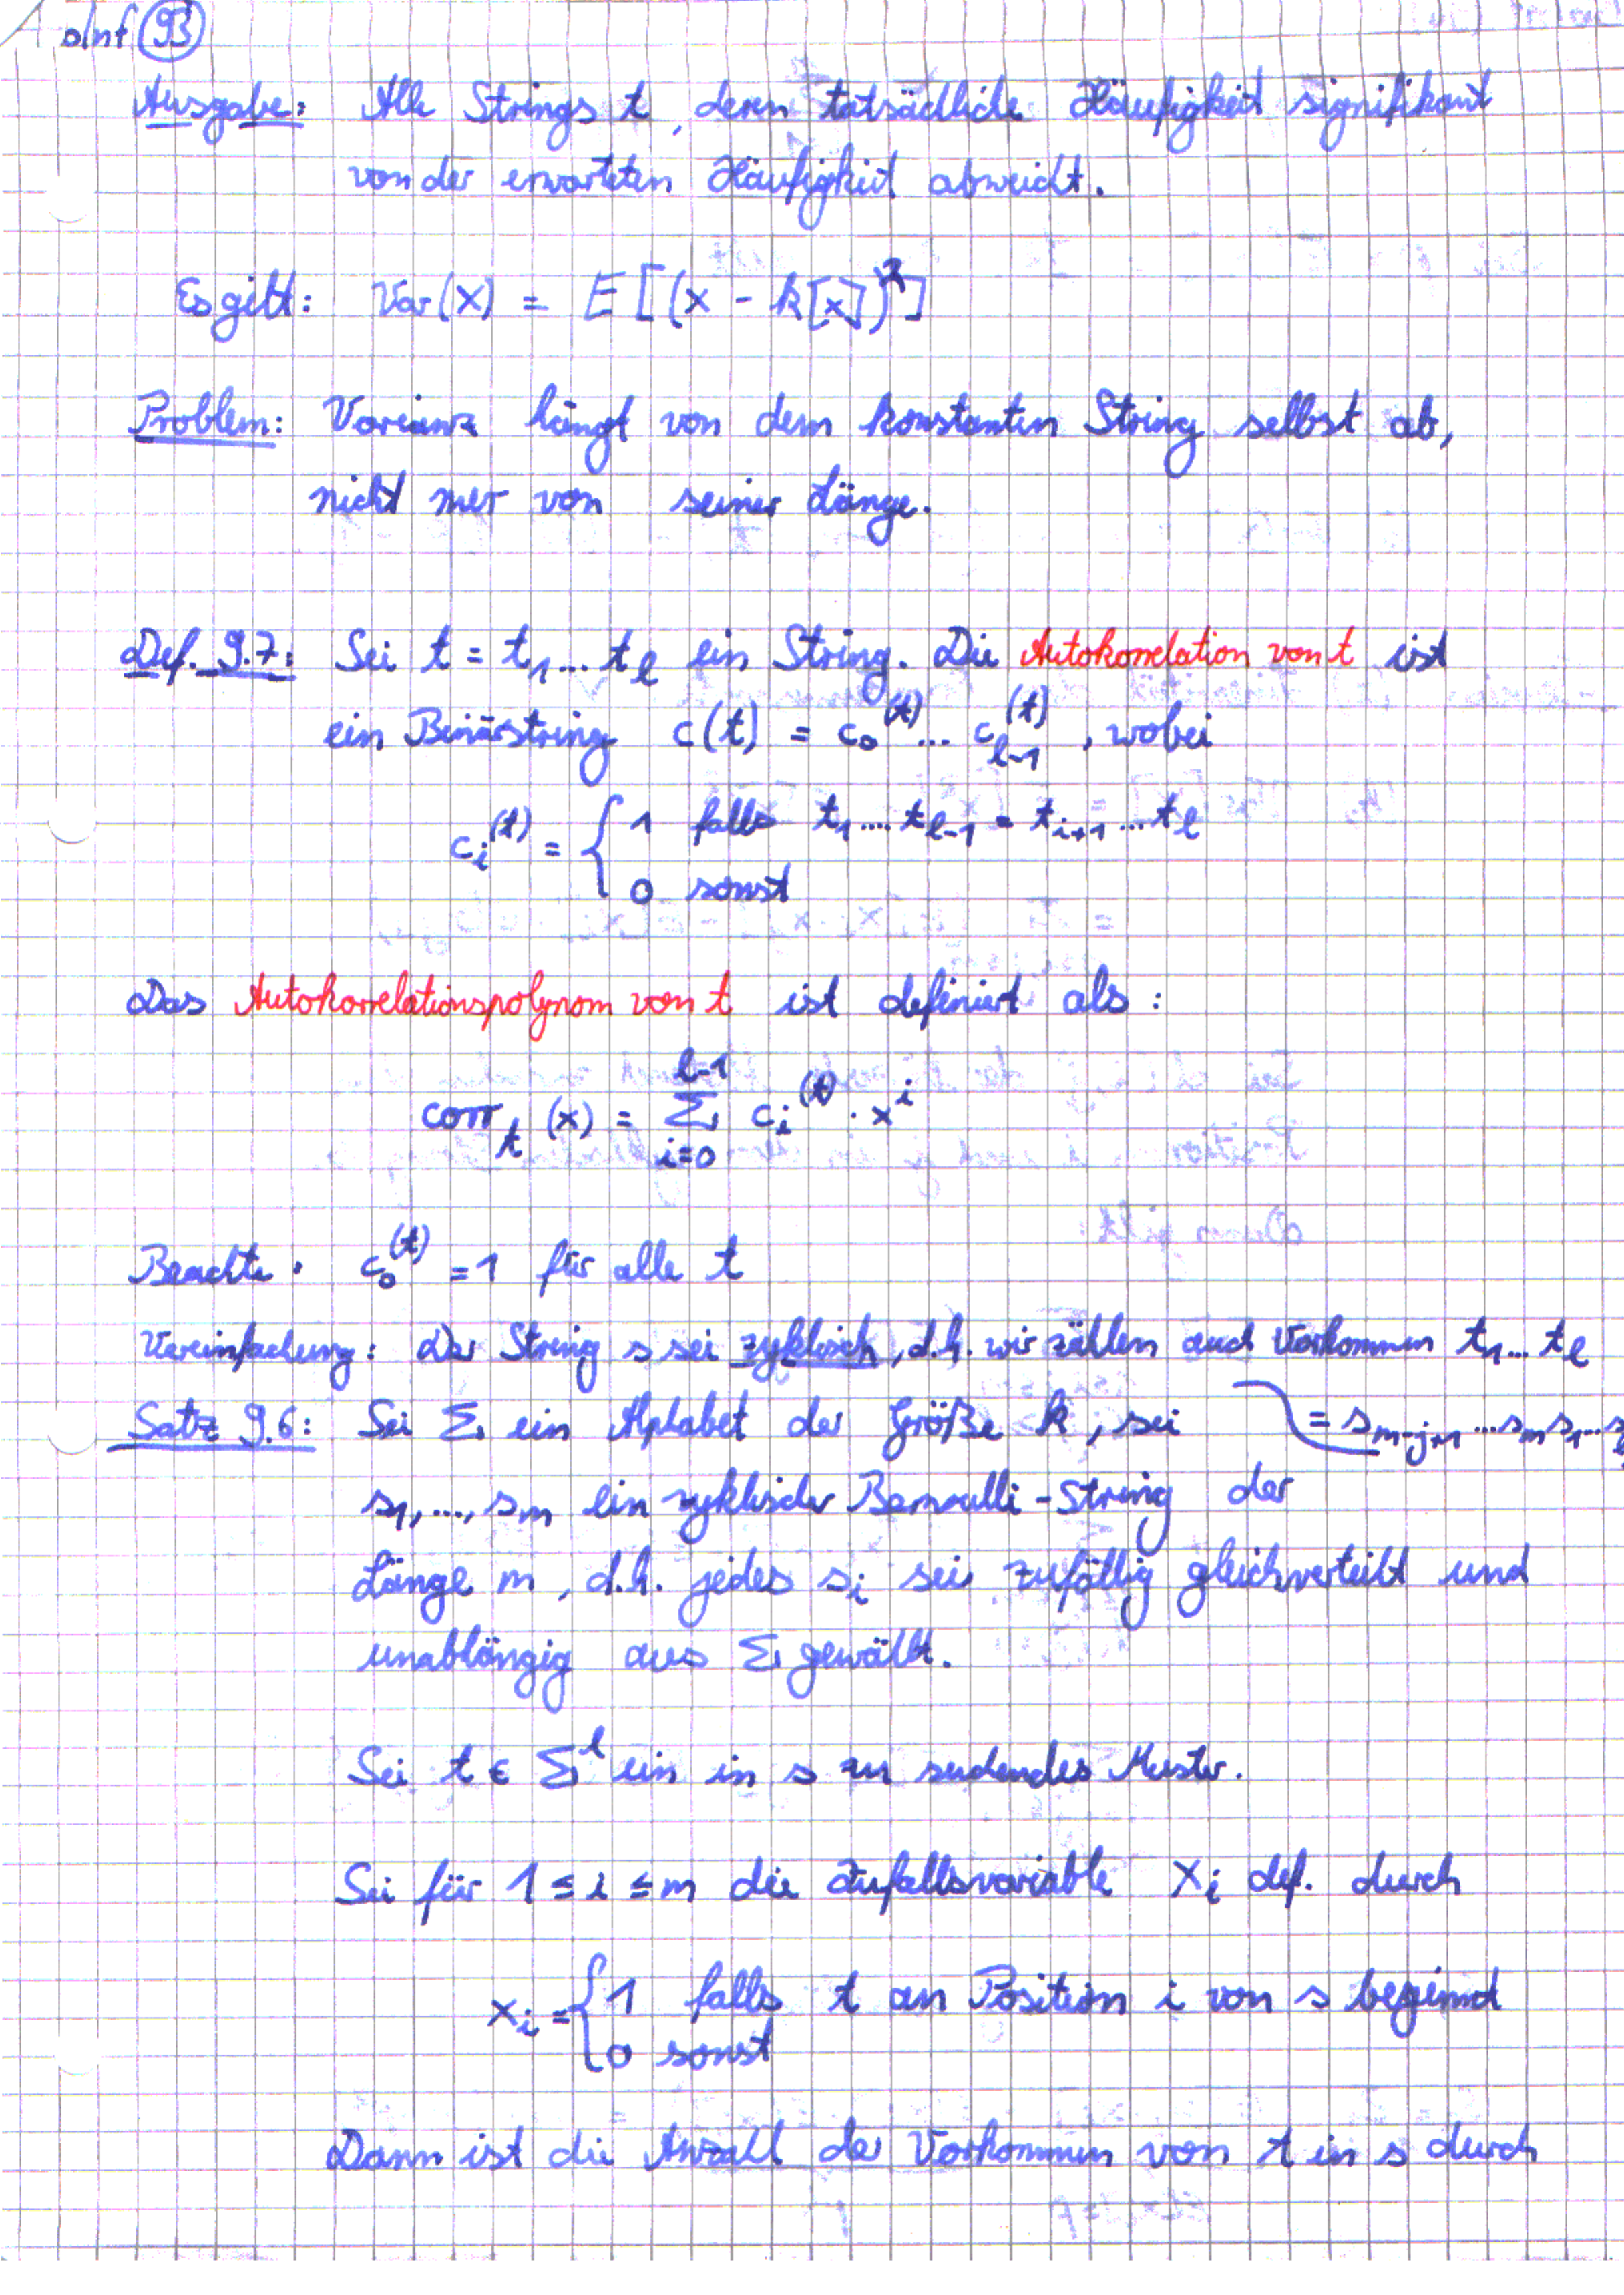 oInf 93
Ausgabe: Alle Strings t, deren tatsächliche Häufigkeit signifikant
von der erwarteten Häufigkeit abweicht.
Es gilt: Var(X) = E[(x - k[x])²]
Problem: Varianz hängt von dem konstanten String selbst ab,
nicht nur von seiner Länge.
Def. 9.7: Sei t = t₁...t_l ein String. Die Autokorrelation von t ist
ein Binärstring c(t) = c₀^(t) ... c_{l-1}^(t), wobei
c_i^(t) = { 1 falls t₁....t_{l-1} = t_{i+1}...t_l
0 sonst
Das Autokorrelationspolynom von t ist definiert als:
corr_t (x) = Σ_{i=0}^{l-1} c_i^(t) · x^i
Beachte: c₀^(t) = 1 für alle t
Vereinfachung: Der String s sei zyklisch, d.h. wir zählen auch Vorkommen t₁...t_l
= s_{m-j+1}...s_m s₁...s
Satz 9.6: Sei Σ ein Alphabet der Größe k, sei
s₁,..., s_m ein zyklischer Bernoulli-String der
Länge m, d.h. jedes s_i sei zufällig gleichverteilt und
unabhängig aus Σ gewählt.
Sei t ∈ Σ^l ein in s zu suchendes Muster.
Sei für 1 ≤ i ≤ m die Zufallsvariable X_i def. durch
X_i = { 1 falls t an Position i von s beginnt
0 sonst
Dann ist die Anzahl der Vorkommen von t in s durch